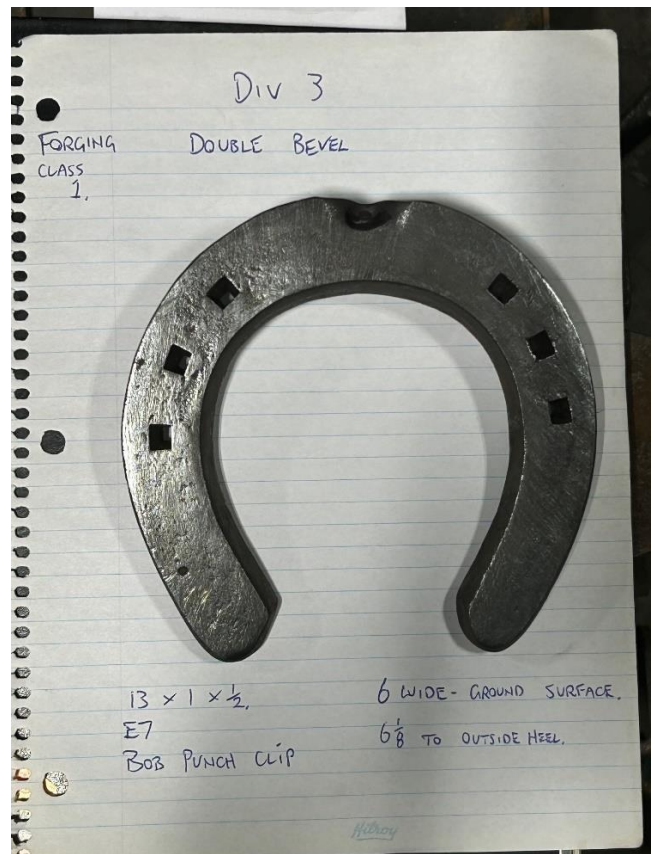 DIV 3
FORGING DOUBLE BEVEL
CLASS
1.
13 x 1 x 1/2.
E7
BOB PUNCH CLIP
6 WIDE - GROUND SURFACE.
6 1/8 TO OUTSIDE HEEL.
Hilroy